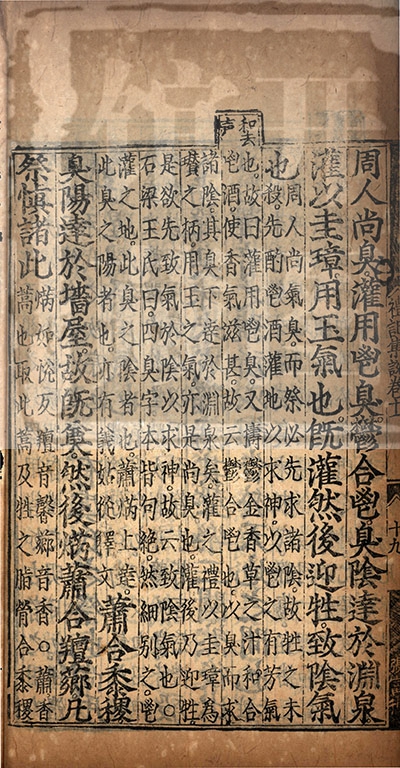 周人尚臭灌用鬯臭鬱合鬯臭陰達於淵泉
灌以圭璋用玉氣也既灌然後迎牲致陰氣
也
周人尚氣臭而祭必先求諸陰故牲之未
殺先酌鬯酒灌地以求神以鬯之有芳氣
也故曰灌用鬯臭又擣鬱金香草之汁和合
鬯酒使香氣滋甚故云鬱合鬯也以臭而求
諸陰其臭下達於淵泉矣灌之禮以圭璋為
瓚之柄用玉之氣亦是尚臭也灌後乃迎牲
是欲先致氣於陰以求神故云致陰氣也○
石梁王氏曰四臭字本皆句絶然細别之鬯
灌之地此臭之陰者也蕭焫上達
此臭之陽者也亦有義姑從釋文
蕭合黍稷
臭陽達於墻屋故既奠然後焫蕭合羶薌凡
祭慎諸此
焫如悅反羶音馨薌音香○蕭香
蒿也取此蒿及牲之脂膋合黍稷
和去
声
十九